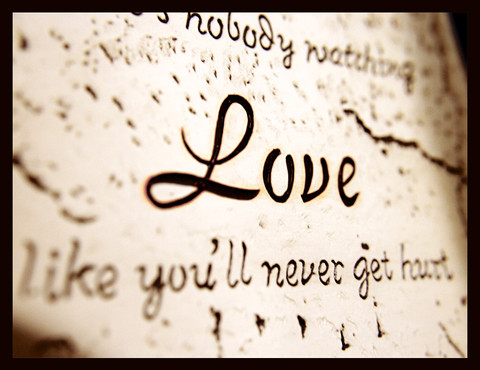 nobody watching
Love
like you'll never get hurt